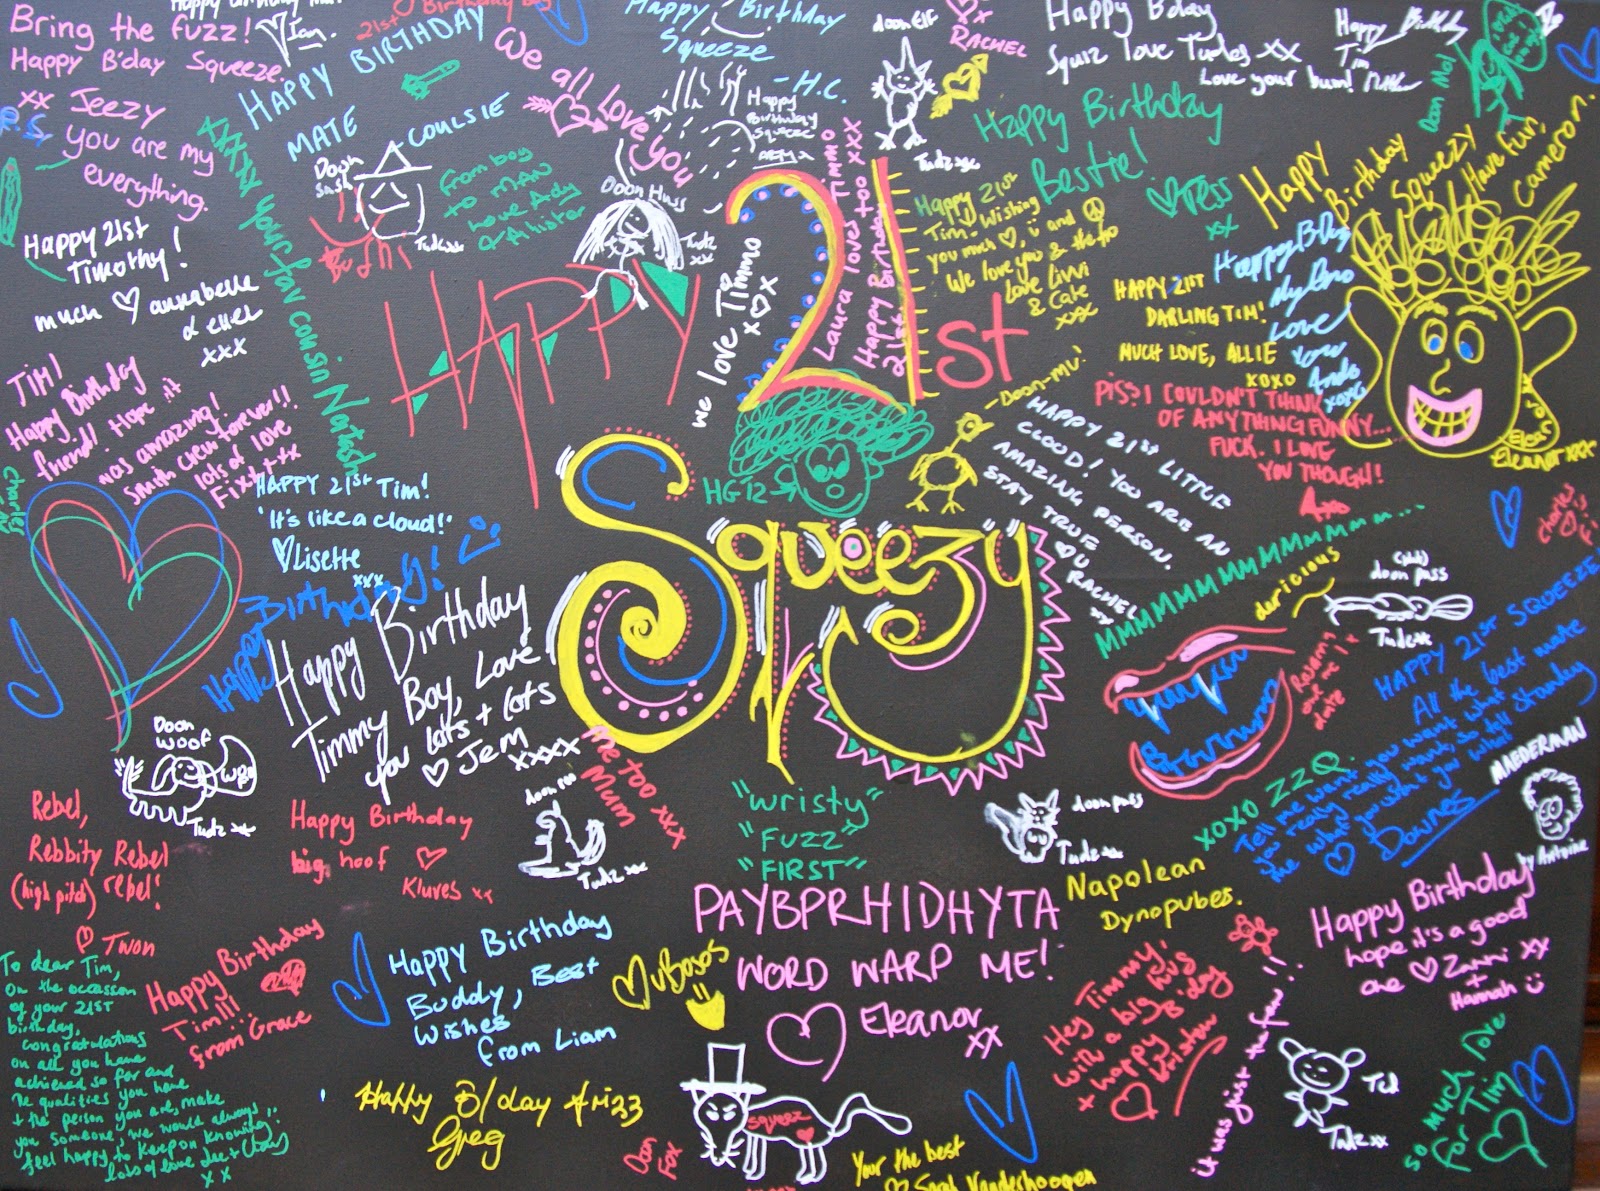 Bring the fuzz!
Happy B'day Squeeze.
xx Jeezy
P.S. you are my
everything.
Ian.
21st
HAPPY BIRTHDAY
MATE
COULSIE
We all love you
Happy Birthday
Squeeze
- H.C.
Happy
Birthday
Squeeze
doon Elf
Tudz xx
xx
RACHEL
Happy Bday
Squiz love Tudes xx
Love your bum!
Happy Birthday
Tim
Doon Mo!
Happy 21st
Timothy!
much ♡ annabelle
xxx
xxxx your fav cousin Natash
Doon
Tudz xx
from boy
to MAN
love Ady
Doon Huss
Tudz
xx
we love Timmo
xoxo
Laura loves Timmo
too xxx
Happy Birthday
21st
HAPPY 21st
Squeezy
Happy 21st
Tim! Wishing
you much ♡, ☺ and ☮
We love you & the fro
Love Livvi
& Cate
xxx
Happy Birthday
Bestie!
♡ Tess
xx
Happy
Birthday
Squeezy
Have fun,
Cameron.
HAPPY 21st
DARLING TIM!
MUCH LOVE, ALLIE
xoxo
Happy BDay
Love
PISS! I COULDN'T THINK
OF ANYTHING FUNNY...
FUCK. I LOVE
YOU THOUGH!
Eleanor xxx
TIM!
Happy Birthday
friend! Hope it
was amazing!
Smith crew forever!!
lots of love
Fix xxx
HAPPY 21st Tim!
'It's like a cloud!'
♡ Lisette
xxx
Happy Birthday!
HG12
Doon-mu!
HAPPY 21st LITTLE
CLOUD! YOU ARE AN
AMAZING PERSON.
STAY TRUE
♡ U
RACHEL
Happy Birthday
Timmy Boy, Love
you lots + lots
♡ Jem
xxxx
me too xxx
Mum
MMMMMMMMMmmm...
dericious
doon pass
Tudz xx
xoxo ZZQ.
HAPPY 21st SQUEEZE!
All the best mate
Tell me what you want what
you really really want, so tell
me what you want what
♡ Downes
Doon
Woof
Woof
Tudz xx
Rebel,
Rebbity Rebel
(high pitch) rebel!
♡ Twon
Happy Birthday
big hoof ♡
Kluves xx
Tudz xx
"Wristy"
"FUZZ"
"FIRST"
doon puss
Tudz xx
MAEDERMAN
by Antoine
Napolean
Dynopubes.
PAYBPRHIDHYTA
WORD WARP ME!
♡ Eleanor
xx
Happy Birthday
hope it's a good
one ♡ Zanni xx
+
Hannah ☺
To dear Tim,
On the occasson
of your 21st
birthday,
congratulations
on all you have
achieved so far and
the qualities you have
+ the person you are, make
you someone, we would always
feel happy to keep on knowing!
xx
Happy Birthday
Tim!!!
from Grace
Happy Birthday
Buddy, Best
Wishes
from Liam
Hey Timmy,
with a big hug
+ happy B'day
it was just the fan!!
Ted
Tudz xx
so much love
for Tim
Happy B/day
Greg
Doon
Fox
Squeez
Your the best
♡ Sarah Vandeshoogen